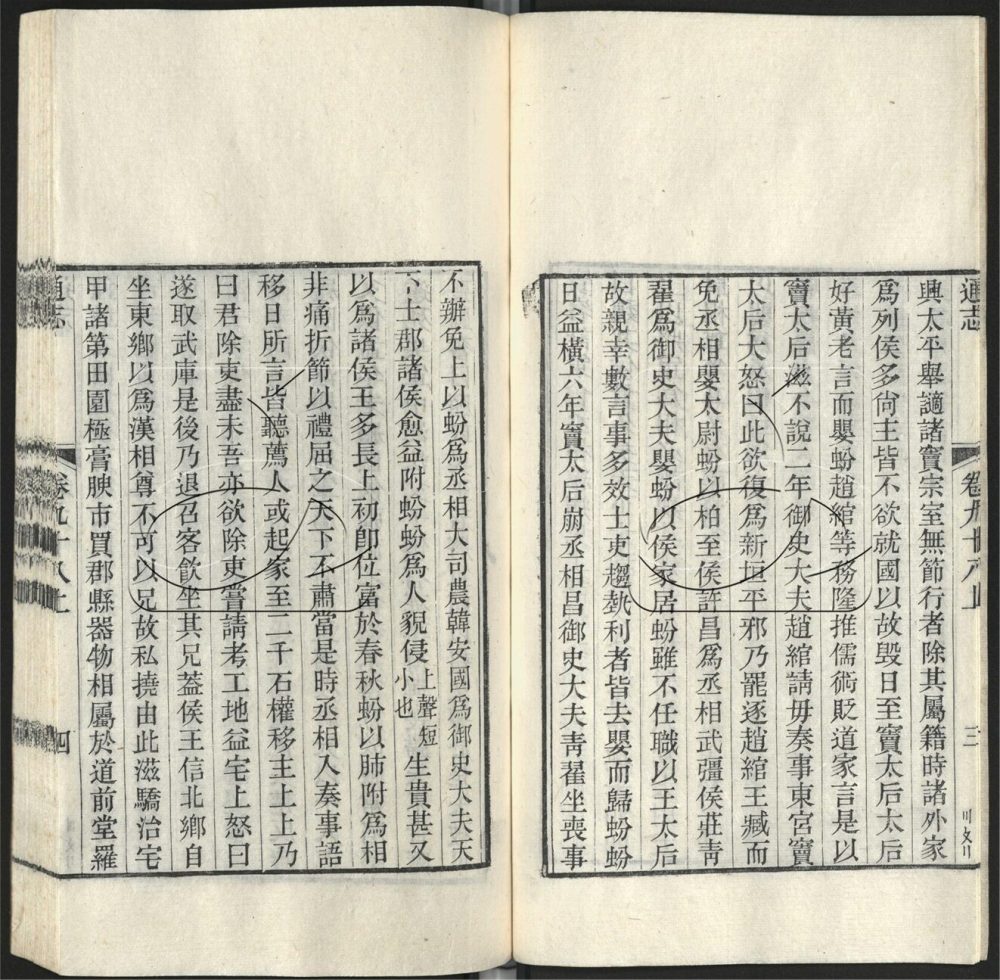 通志
卷九十八上
三
興太平舉謫諸竇宗室無節行者除其屬籍時諸外家
爲列侯多尚主皆不欲就國以故毀日至竇太后太后
好黃老言而嬰蚡趙綰等務隆推儒術貶道家言是以
竇太后滋不說二年御史大夫趙綰請毋奏事東宮竇
太后大怒曰此欲復爲新垣平邪乃罷逐趙綰王臧而
免丞相嬰太尉蚡以柏至侯許昌爲丞相武彊侯莊靑
翟爲御史大夫嬰蚡以侯家居蚡雖不任職以王太后
故親幸數言事多效士吏趨埶利者皆去嬰而歸蚡蚡
日益橫六年竇太后崩丞相昌御史大夫靑翟坐喪事
不辦免上以蚡爲丞相大司農韓安國爲御史大夫天
下士郡諸侯愈益附蚡蚡爲人貌侵上聲短小也生貴甚又
以爲諸侯王多長上初卽位富於春秋蚡以肺附爲相
非痛折節以禮屈之天下不肅當是時丞相入奏事語
移日所言皆聽薦人或起家至二千石權移主上上乃
曰君除吏盡未吾亦欲除吏嘗請考工地益宅上怒曰
遂取武庫是後乃退召客飮坐其兄蓋侯王信北鄉自
坐東鄉以爲漢相尊不可以兄故私撓由此滋驕治宅
甲諸第田園極膏腴市買郡縣器物相屬於道前堂羅
通志
卷九十八上
四